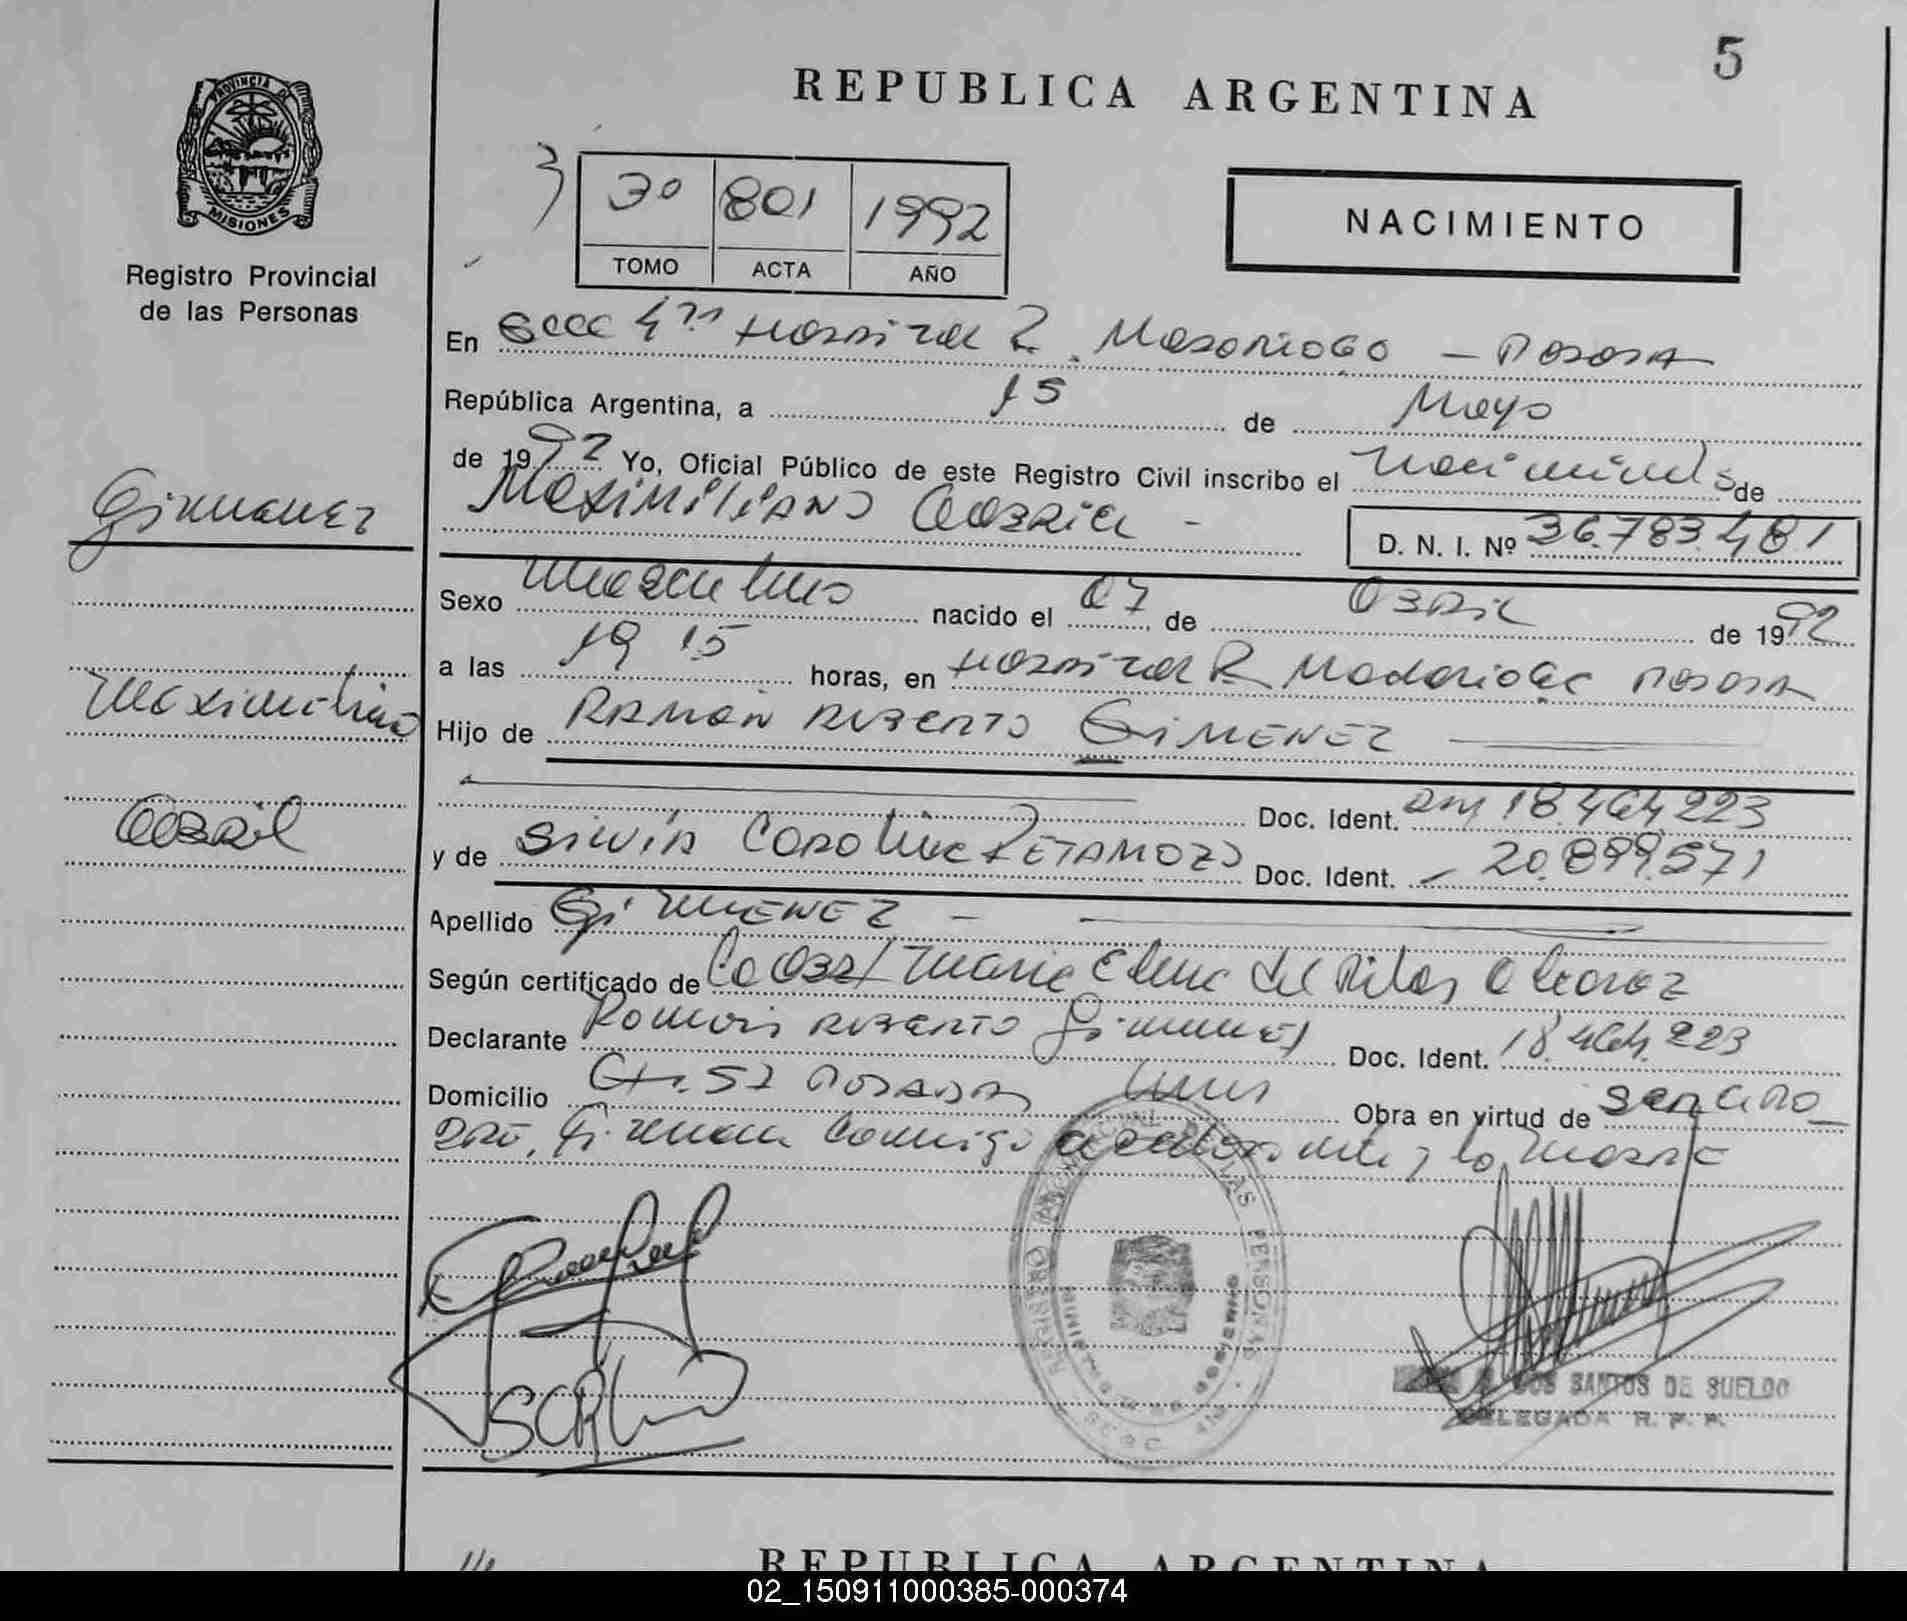 5
REPUBLICA ARGENTINA
PROVINCIA DE
MISIONES
Registro Provincial
de las Personas
3º 801 1992
TOMO ACTA AÑO
NACIMIENTO
En Secc 4ta Hospital R. Madariaga - Posadas
República Argentina, a 15 de Mayo
de 1992 Yo, Oficial Público de este Registro Civil inscribo el nacimiento de
Maximiliano Gabriel - D. N. I. Nº 36.783.481
Gimenez
Sexo masculino nacido el 07 de Abril de 1992
a las 19 15 horas, en Hospital R. Madariaga Posadas
Maximiliano
Hijo de Ramón Alberto GIMENEZ
Doc. Ident. DNI 18.464.223
y de Silvia Carolina RETAMOZO Doc. Ident. 20.899.571
Apellido GIMENEZ -
Según certificado de Maria Elena del Alcaraz
Declarante Ramón Alberto Gimenez Doc. Ident. 18.464.223
Domicilio Ch. 52 Posadas Mnes Obra en virtud de ser el pa
dre, firman conmigo el declarante y la madre
SCR
DOS SANTOS DE SUELDO
DELEGADA R. P. P.
REPUBLICA ARGENTINA
02_150911000385-000374